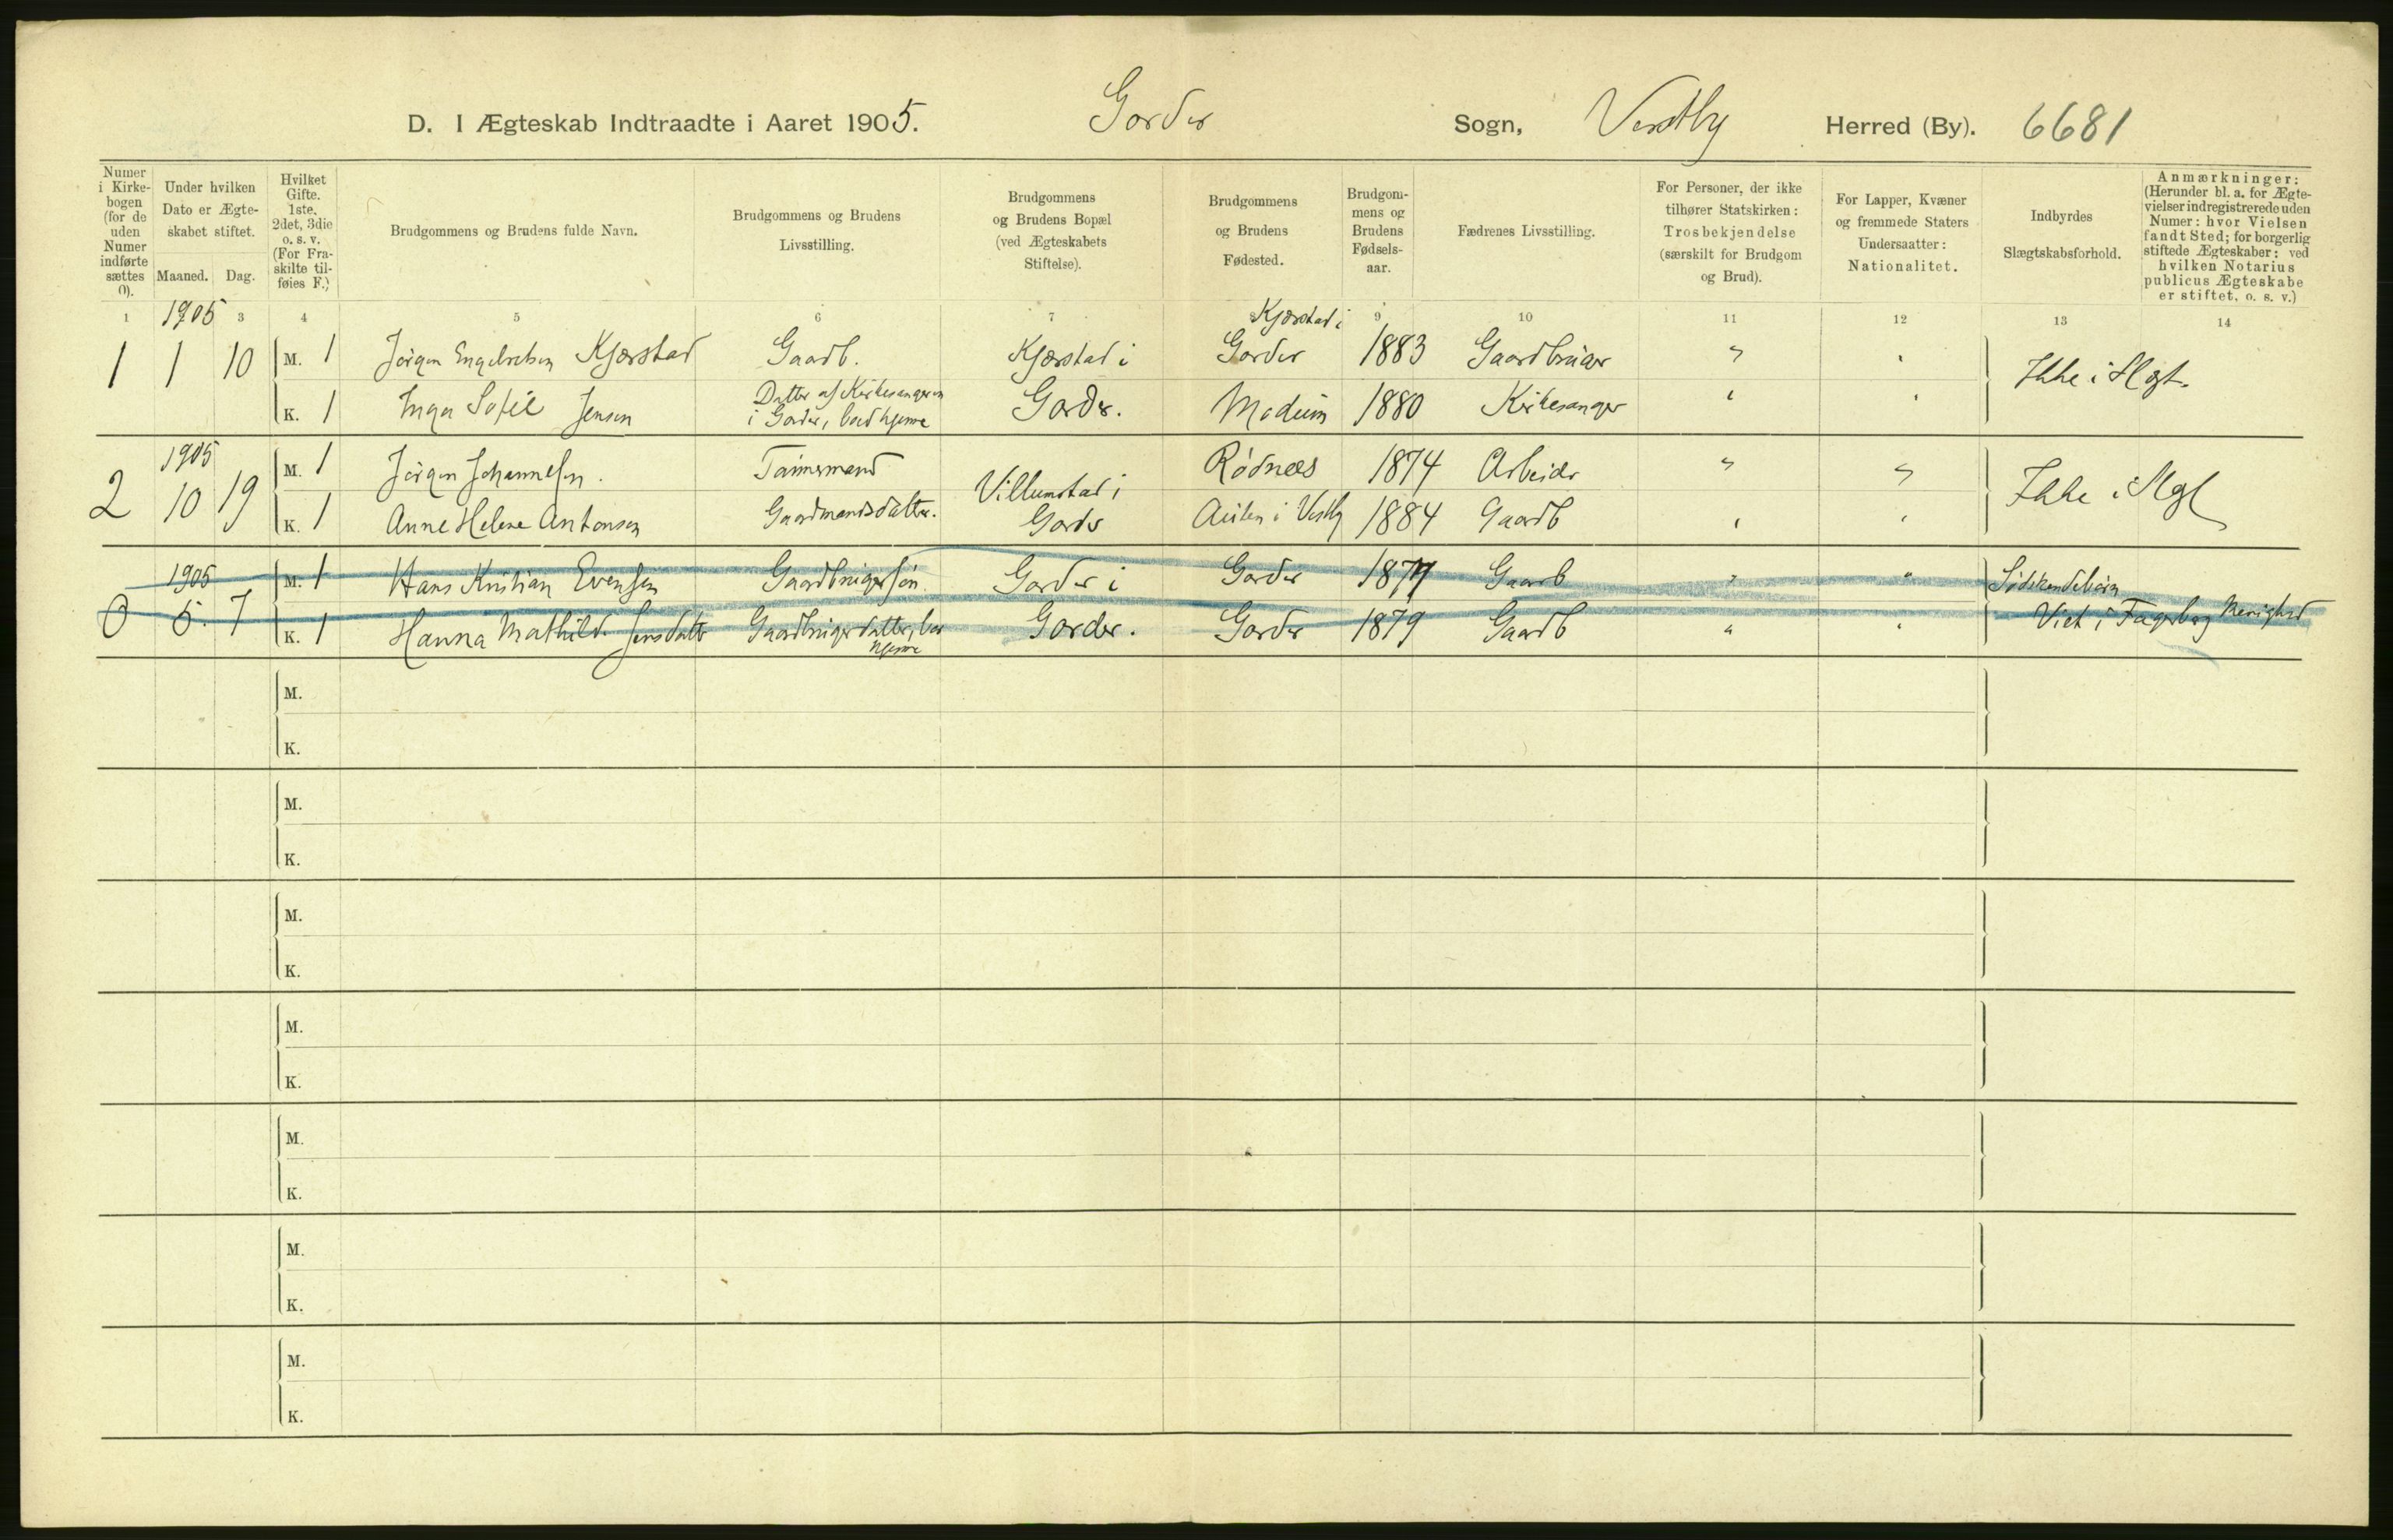 D. I Ægteskab Indtraadte i Aaret 1905. Gorder Sogn, Vestby Herred (By). 6681
Numer i Kirkebogen (for de uden Numer indførte sættes 0).
Under hvilken Dato er Ægteskabet stiftet.
Maaned. Dag.
Hvilket Gifte. 1ste, 2det, 3die o. s. v. (For Fraskilte tilføies F.)
Brudgommens og Brudens fulde Navn.
Brudgommens og Brudens Livsstilling.
Brudgommens og Brudens Bopæl (ved Ægteskabets Stiftelse).
Brudgommens og Brudens Fødested.
Brudgommens og Brudens Fødselsaar.
Fædrenes Livsstilling.
For Personer, der ikke tilhører Statskirken: Trosbekjendelse (særskilt for Brudgom og Brud).
For Lapper, Kvæner og fremmede Staters Undersaatter: Nationalitet.
Indbyrdes Slægtskabsforhold.
Anmærkninger: (Herunder bl. a. for Ægtevielser indregistrerede uden Numer: hvor Vielsen fandt Sted; for borgerlig stiftede Ægteskaber: ved hvilken Notarius publicus Ægteskabe er stiftet, o. s. v.)
1 3 4 5 6 7 9 10 11 12 13 14
1905 Kjærstad i
1 1 10 M. 1 Jørgen Engebretsen Kjærstad Gaardb. Kjærstad i Gorder 1883 Gaardbruger " " Ikke i Slægt.
K. 1 Inga Sofie Jensen Datter af Kirkesangeren i Gorder, hjemme Gorder. Modum 1880 Kirkesanger " "
1905
2 10 19 M. 1 Jørgen Johannesen. Tømmermand Villumstad i Rødnæs 1874 Arbeider " " Ikke i Slgt
K. 1 Anne Helene Antonsen Gaardmandsdatter. Gorder i Vestby 1884 Gaardb " "
1905
0 5. 7 M. 1 Hans Kristian Evensen Gaardbrugersøn Gorder i Gorder 1877 Gaarb " " Sødskendebørn
K. 1 Hanna Mathilde Jensdatter Gaardbrugerdatter, hjemme Gorder. Gorder 1879 Gaardb " " Viet i Fagerborg Menighed
M.
K.
M.
K.
M.
K.
M.
K.
M.
K.
M.
K.
M.
K.